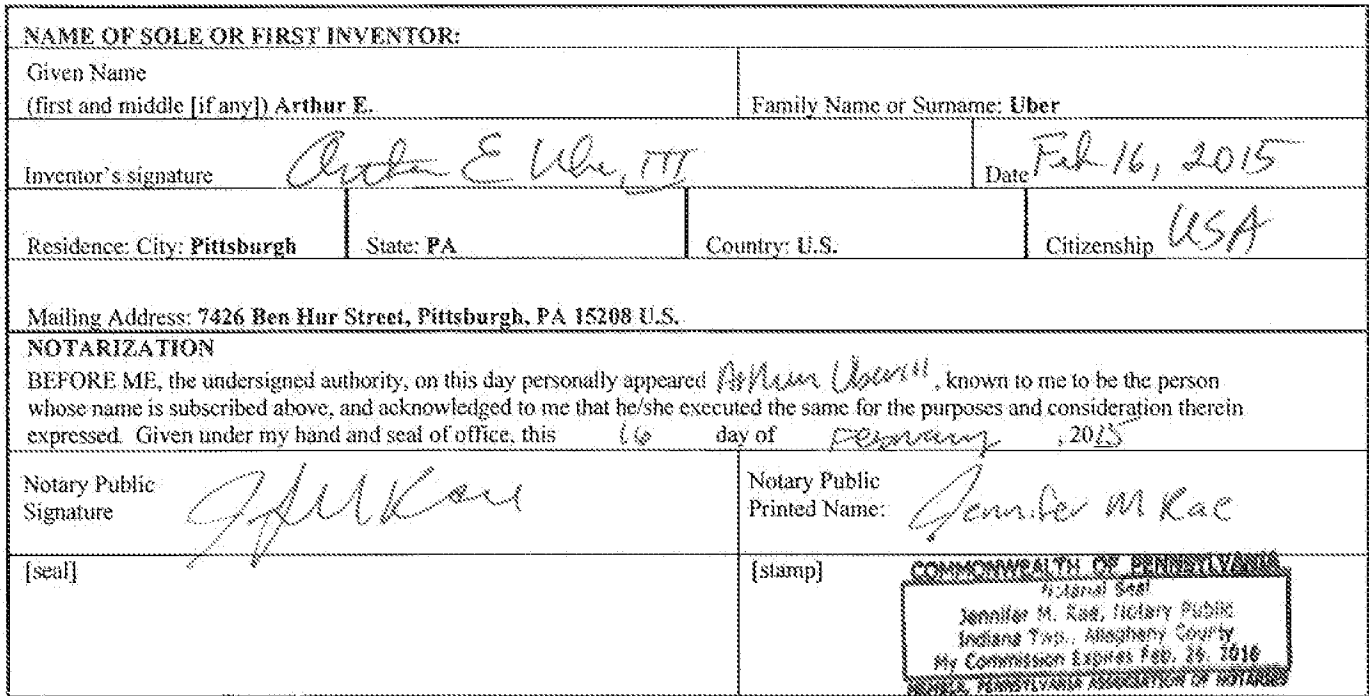 NAME OF SOLE OR FIRST INVENTOR:
Given Name
(first and middle [if any]) Arthur E.
Family Name or Surname: Uber
Inventor's signature Arthur E Uber, III
Date Feb 16, 2015
Residence: City: Pittsburgh
State: PA
Country: U.S.
Citizenship USA
Mailing Address: 7426 Ben Hur Street, Pittsburgh, PA 15208 U.S.
NOTARIZATION
BEFORE ME, the undersigned authority, on this day personally appeared Arthur Uber III, known to me to be the person
whose name is subscribed above, and acknowledged to me that he/she executed the same for the purposes and consideration therein
expressed. Given under my hand and seal of office, this 16 day of February, 2015
Notary Public
Signature
Notary Public
Printed Name: Jennifer M Rae
[seal]
[stamp]
COMMONWEALTH OF PENNSYLVANIA
Notarial Seal
Jennifer M. Rae, Notary Public
Indiana Twp., Allegheny County
My Commission Expires Feb.
MEMBER, PENNSYLVANIA ASSOCIATION OF NOTARIES